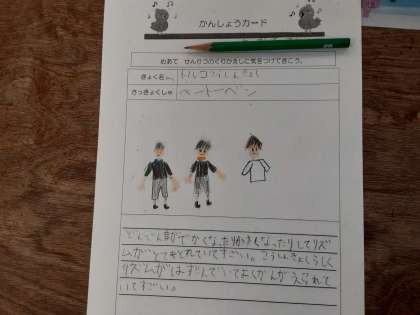 かんしょうカード
めあて せんりつのくりかえしに気をつけてきこう。
きょく名
トルココウしんきょく
さっきょくしゃ
ベートーベン
どんどん音がでかくなったり小さくなったりしてリズ
ムがとてもとれていてすごい。こうしんきょくらしく
リズムがはずんでいてよくかんがえられて
いてすごい。